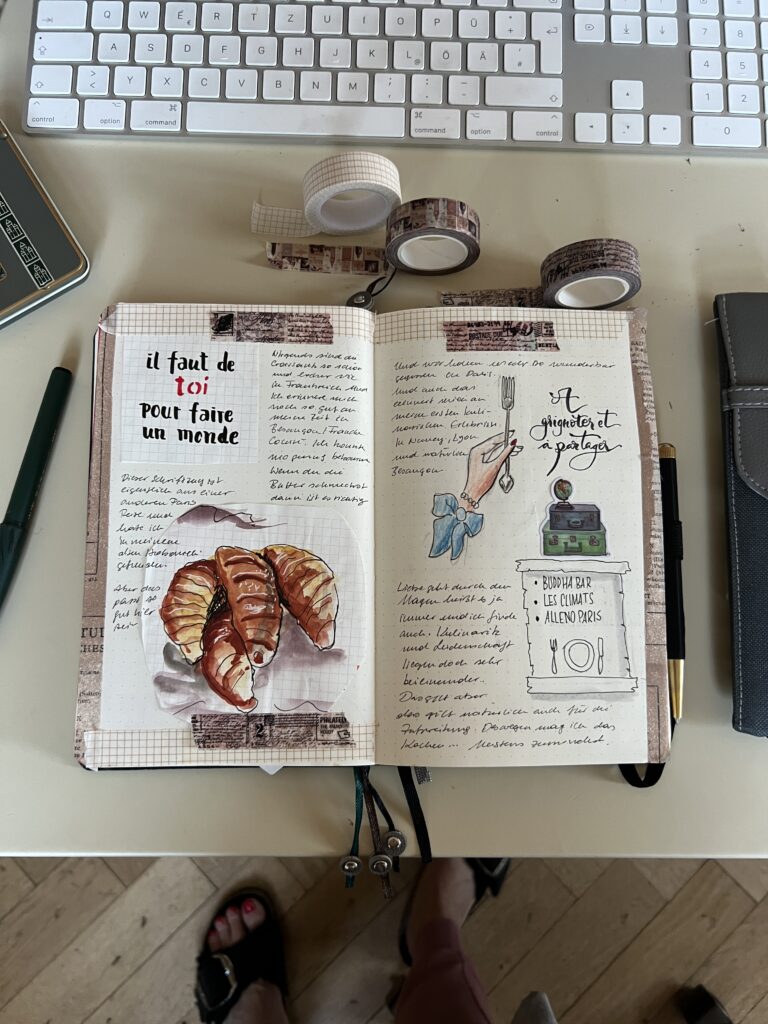 Q W E R T Z U I O P Ü +
A S D F G H J K L Ö Ä #
Y X C V B N M
control option command
command option control
7 8
4 5
1 2
0
il faut de
toi
pour faire
un monde
Nirgends sind die
Croissants so schön
und lecker wie
in Frankreich.
Ich erinnere mich
noch so gut an
meine Zeit in
Besançon / Franche
Comté. Ich konnte
nie genug bekommen
Wenn du die
Butter schmeckst
dann ist es richtig
Dieser Schriftzug ist
eigentlich aus einer
anderen Paris
Reise und
habe ich
in meinem
alten
gefunden.
Aber das
passt so
gut hier
rein
PHILATELY
2
Und wir haben wieder so wunderbar
gegessen in Paris.
Und auch das
erinnert mich an
meinen ersten kuli-
narischen Erlebnisse
in Nancy, Lyon
und natürlich
Besançon
A
grignoter et
à partager
• BUDDHA BAR
• LES CLIMATS
• ALLENO PARIS
Liebe geht durch den
Magen heißt es ja
immer und ich finde
auch. Kulinarik
und Leidenschaft
liegen doch sehr
beieinander.
Das gilt aber
also gilt natürlich auch für die
Zubereitung. Deswegen mag ich das
Kochen... Meistens zumindest.